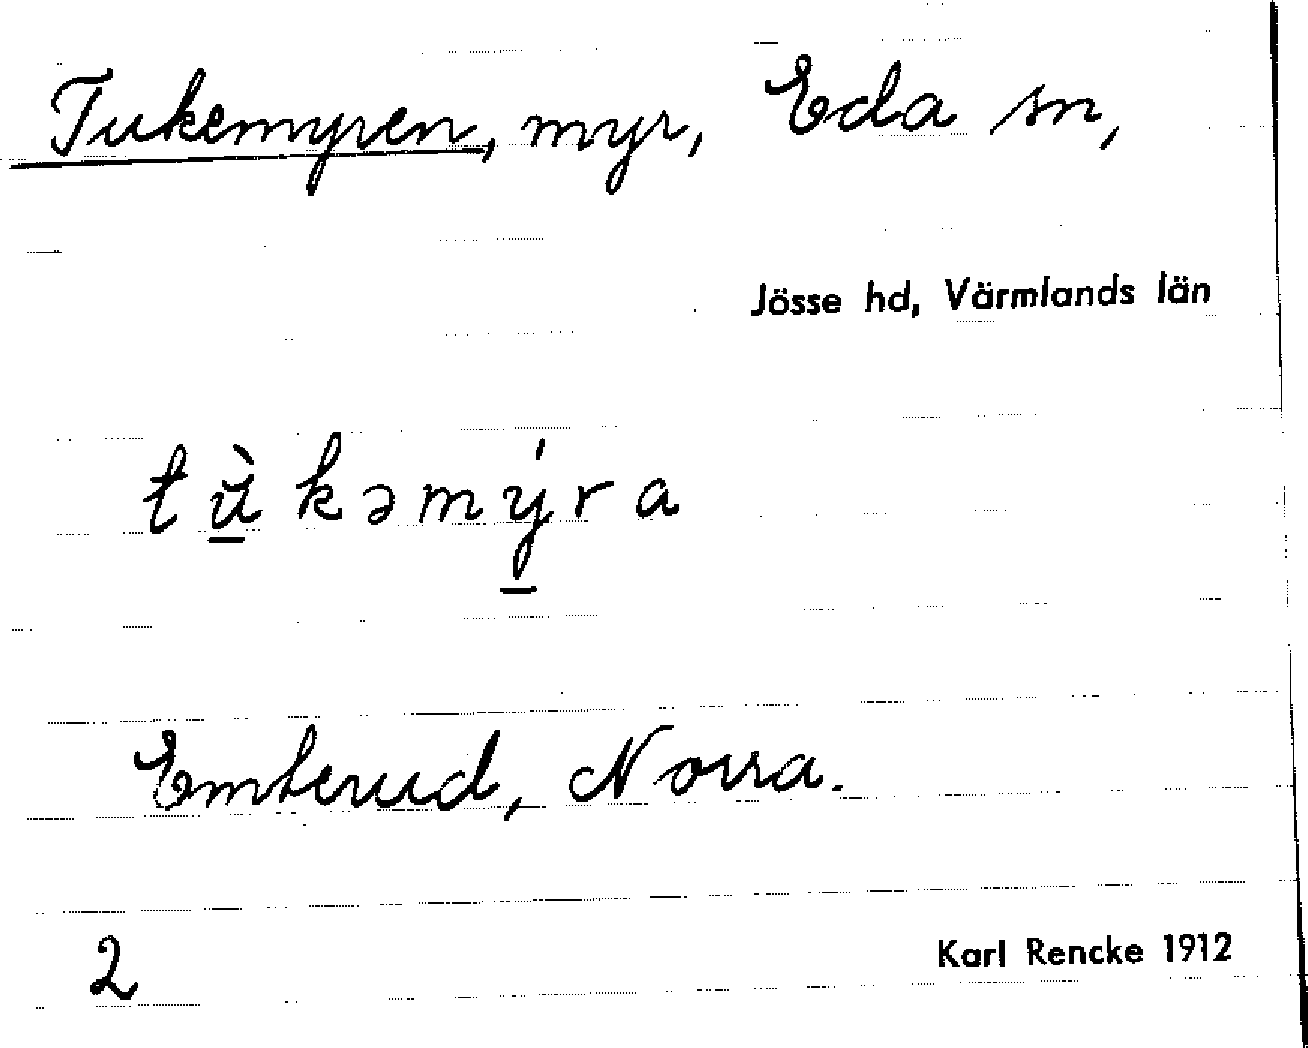 Tukemyren, myr, Eda sn,
Jösse hd, Värmlands län
tù̲kəmý̲ra
Emterud, Norra.
2
Karl Rencke 1912